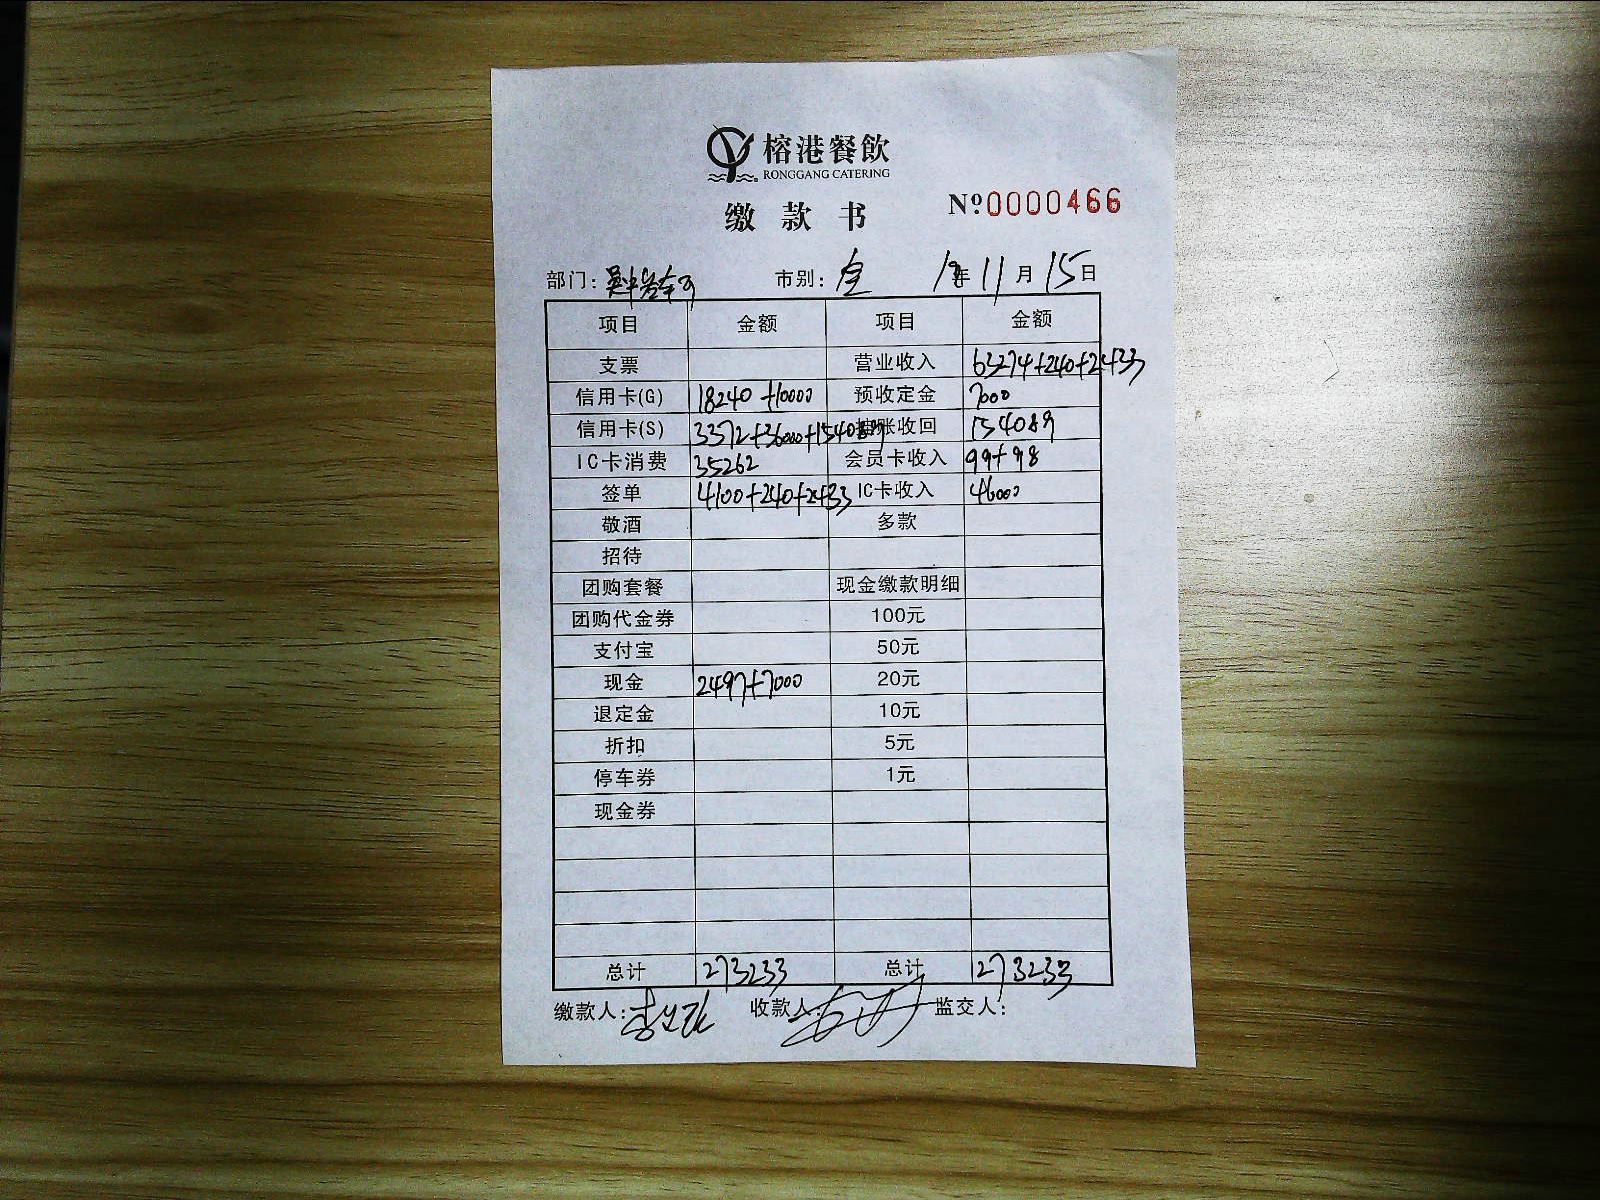 榕港餐飲
RONGGANG CATERING
缴款书
Nº 0000466
部门: 市别: 全 19年11月15日
项目 金额 项目 金额
支票 营业收入 63274+240+2433
信用卡(G) 18240+10000 预收定金 7000
信用卡(S) 3372+36000+154089 挂账收回 154089
IC卡消费 35262 会员卡收入 99+98
签单 4100+240+2433 IC卡收入 46000
敬酒 多款
招待
团购套餐 现金缴款明细
团购代金券 100元
支付宝 50元
现金 2497+7000 20元
退定金 10元
折扣 5元
停车券 1元
现金券
总计 273233 总计 273233
缴款人: 收款人: 监交人: